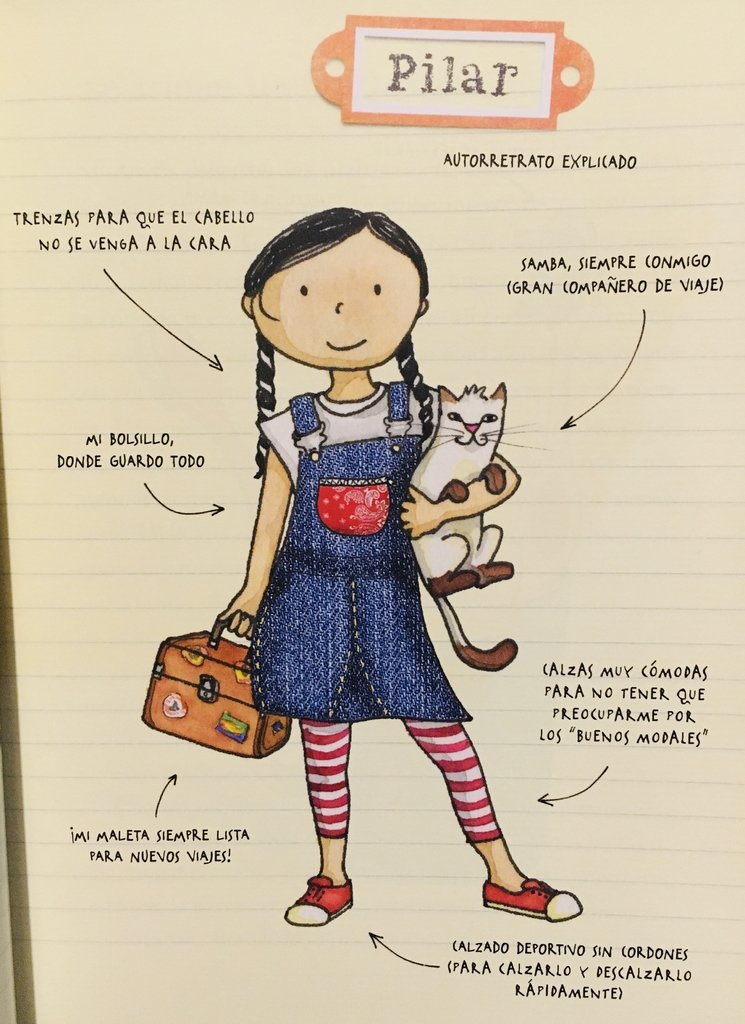 Pilar
AUTORRETRATO EXPLICADO
TRENZAS PARA QUE EL CABELLO
NO SE VENGA A LA CARA
SAMBA, SIEMPRE CONMIGO
(GRAN COMPAÑERO DE VIAJE)
MI BOLSILLO,
DONDE GUARDO TODO
CALZAS MUY CÓMODAS
PARA NO TENER QUE
PREOCUPARME POR
LOS "BUENOS MODALES"
¡MI MALETA SIEMPRE LISTA
PARA NUEVOS VIAJES!
CALZADO DEPORTIVO SIN CORDONES
(PARA CALZARLO Y DESCALZARLO
RÁPIDAMENTE)